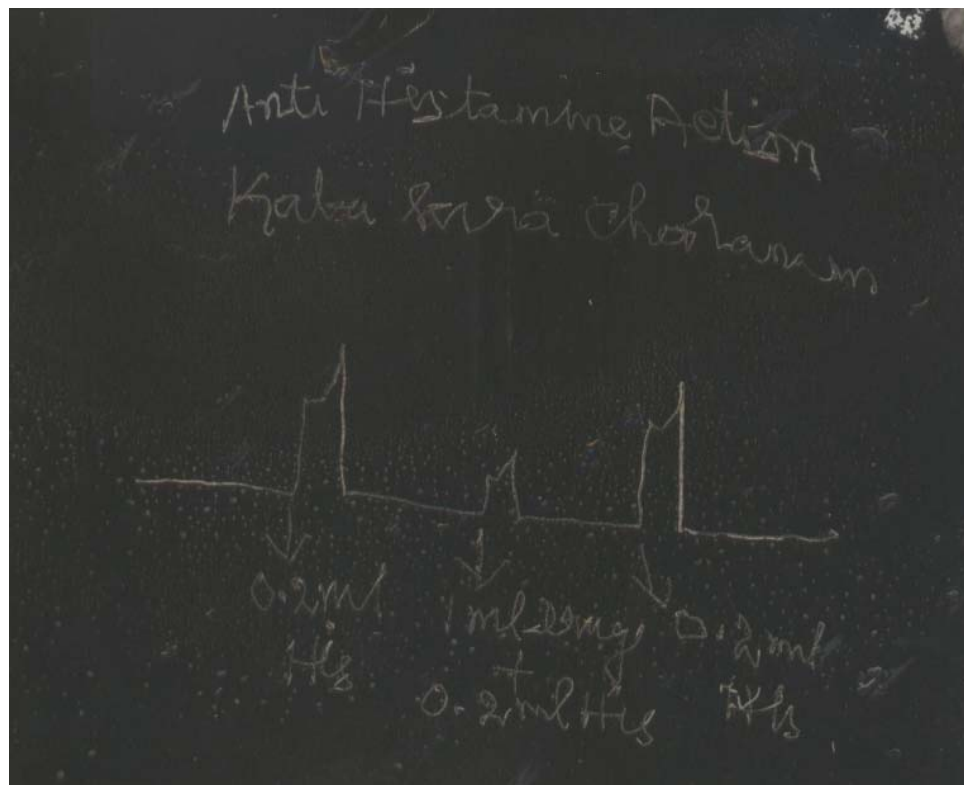 Anti Histamine Action
Kaba Sura Chooranam
0.2ml
His
1ml 20mg
+
0.2ml His
0.2ml
His